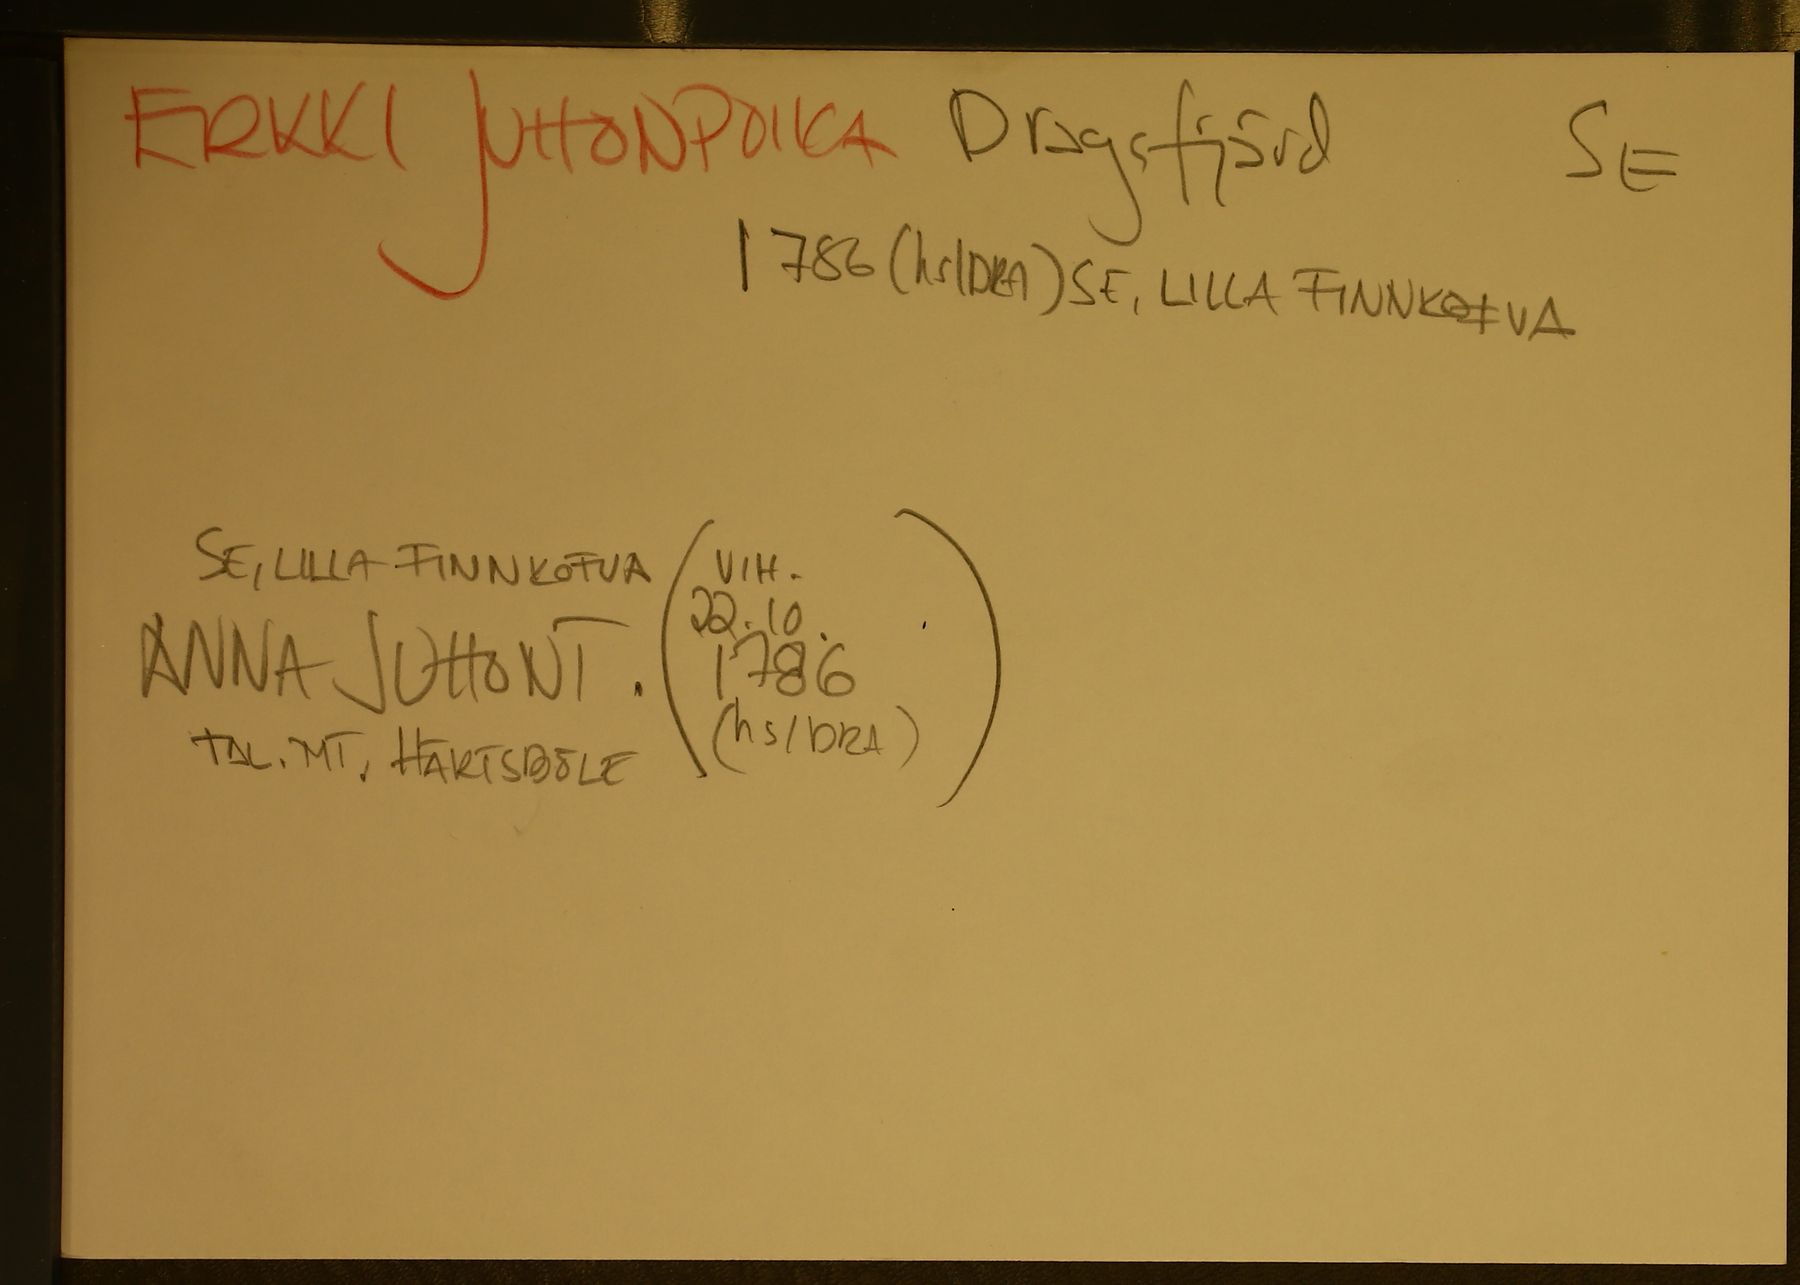 ERKKI JUHONPOIKA Dragsfjärd SE
1786 (hs/DRA) SE, LILLA FINNKOFVA
SE, LILLA FINNKOFVA
VIH.
22.10.
1786
(hs/DRA)
ANNA JUHONT.
TAL. MT, HÄKTSBÖLE